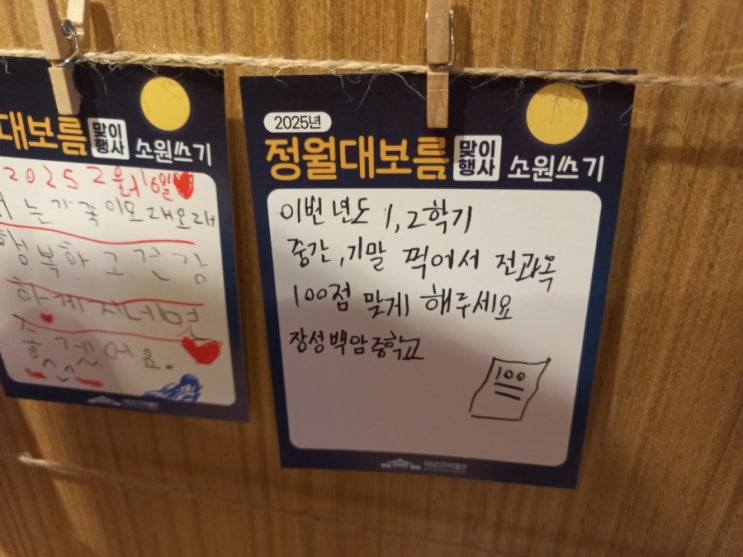 대보름 맞이 행사 소원쓰기
2025 2월 16일
는 가족이 오래오래
행복하고 건강
하게 지내면
좋겠어요.
2025년
정월대보름 맞이 행사 소원쓰기
이번년도 1,2학기
중간,기말 찍어서 전과목
100점 맞게 해주세요
장성백암중학교
100